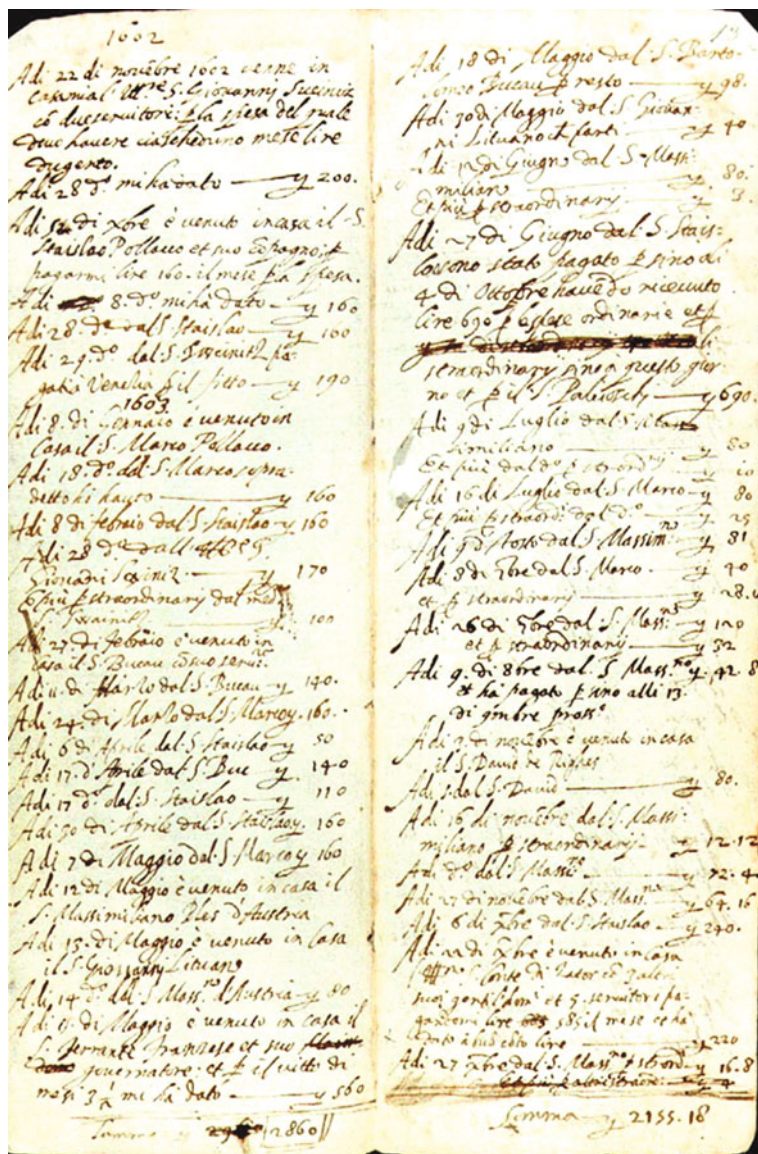 1602
Adi 22 di novēbre 1602 venne in
casa mia l' Ill.re S. Giovanni Sueiniz
cō due servitori: ꝑ la spesa del quale
deve havere ciascheduno mese lire
dugento.
Adi 28 d.o mi ha dato — ỿ 200.
Adi di xbre è venuto in casa il S.
Staislao Pollacco et suo cōpagno; ꝑ
pagarmi lire 160. il mese ꝑ la spesa.
Adi 8. d.o mi ha dato — ỿ 160
Adi 28. d.o dal S. Staislao — ỿ 100
Adi 29. d.o dal S. Sveinitz pa-
gati a Venetia ꝑ il fitto — ỿ 190
1603.
Adi 8. di Gennaio è venuto in
Casa il S. Marco Pollacco.
Adi 18. d.o dal S. Marco sopra-
detto hi hauto — ỿ 160
Adi 8 di febraio dal S. Staislao — ỿ 160
28 d.o dall'
Giovāni Sveiniz. — ỿ 170
Et più ꝑ straordinary dal med.o
S. Sveinitz — 100
Adi 27. di febraio è venuto in
casa il S. Bucau cō suo serv.re
Adi 11. di Marzo dal S. Bucau — ỿ 140.
Adi 24. di Marzo dal S. Marco ỿ. 160.
Adi 6 di Aprile dal S. Staislao — ỿ 50
Adi 17. d'Aprile dal S. Buc ỿ 140
Adi 17 d.o dal S. Staislao — ỿ 110
Adi 30 di Aprile dal S. Staislao ỿ. 160
Adi 7 di Maggio dal S. Marco ỿ 160
Adi 12 di Maggio è venuto in casa il
S. Massimiliano d'Austria
Adi 13. di Maggio è venuto in casa
il S. Giovanni Lituano
Adi 14. d.o dal S. Mass.no d'Austria — ỿ 80
Adi di Maggio è venuto in casa il
S. Ferrante Franzese et suo
governatore: et ꝑ il vitto di
mesi 3 ½ mi ha dato — ỿ 560
Somma ỿ 2860
13
Adi 18 di Maggio dal S. Barto-
lomeo Bucau ꝑ resto — ỿ 98.
Adi 30 di Maggio dal S. Giovan-
ni Lituano — ỿ 40
Adi 12 di Giugno dal S. Massi-
miliano — ỿ 80.
Et più ꝑ straordinary — ỿ 3.
Adi 27 di Giugno dal S. Stais-
lao sono stato pagato ꝑ sino ai
4. di Ottobre havēdo ricevuto
lire 690 ꝑ le spese ordinarie et ꝑ
straordinary sino a questo gior-
no et ꝑ il S. — ỿ 690.
Adi 9 di Luglio dal S.
similiano — ỿ 80
Et più dal d.o ꝑ straord.ry — ỿ 10
Adi 16 di Luglio dal S. Marco — ỿ 80
Et più ꝑ straord. dal d.o — ỿ 25
Adi 9 d'Aosto dal S. Massim.no ỿ 81
Adi 8 di 7bre dal S. Marco. — ỿ 40
et ꝑ straordinary — ỿ 28.
Adi 26 di 7bre dal S. Mass.no — ỿ 120
et ꝑ straordinarij — ỿ 32
Adi 9. di 8bre dal S. Mass.no ỿ. 42. 8
et ha pagato ꝑ sino alli 13
di 9mbre pross.o
Adi di novēbre è venuto in casa
il S. David
Adi dal S. David — ỿ 80.
Adi 16 di novēbre dal S. Massi-
miliano ꝑ straordinary — ỿ 12. 12
Adi d.o dal S. Massi.no — ỿ 72. 4
Adi 27 di novēbre dal S. Mass.no — ỿ 64. 16
Adi 6 di xbre dal S. Staislao — ỿ 240.
Adi 22 di xbre è venuto in casa
l'Ill.mo S. Conte di cō
suoi gentil'homi et 5. servitori pa-
gandomi lire 585 il mese et ha
dato à buō cōto lire — ỿ 220
Adi 27 xbre dal S. Mass.no ꝑ straord. ỿ 16. 8
Et più ꝑ altri straord. — ỿ 4
Somma — ỿ 2155. 18